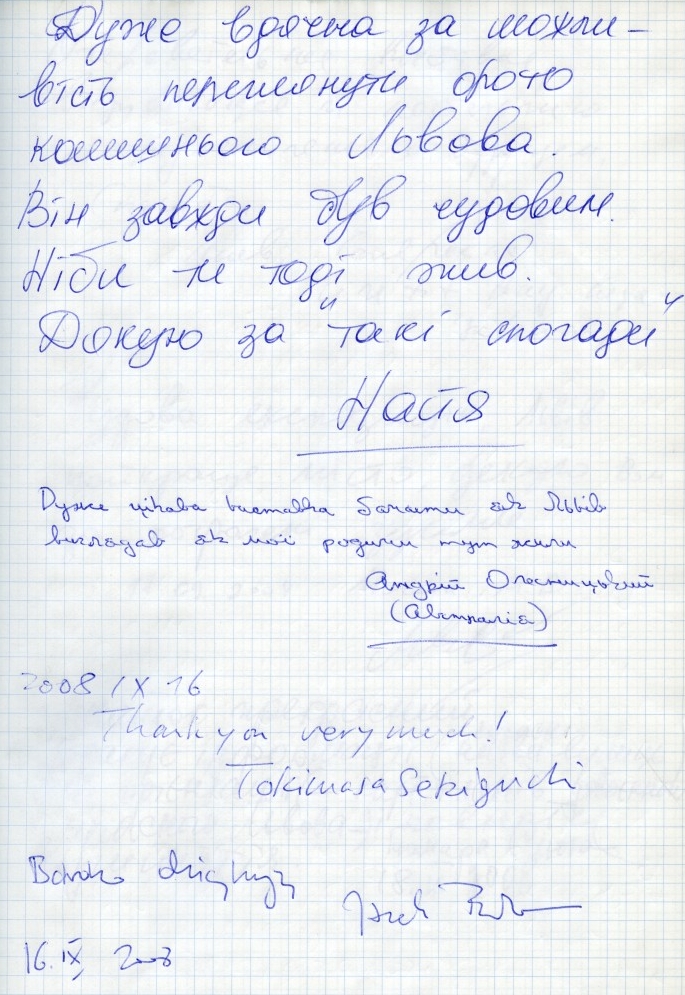 Дуже вдячна за можли-
вість переглянути фото
колишнього Львова.
Він завжди був чудовим.
Ніби ти тоді жив.
Дякую за "такі спогади"
Настя
Дуже цікава виставка бачити як Львів
виглядав як мої родичи тут жили
Андрій Олесницький
(Австралія)
2008 IX 16
Thank you very much!
Tokimasa Sekiguchi
Bardzo dziękuję
16.IX, 2008